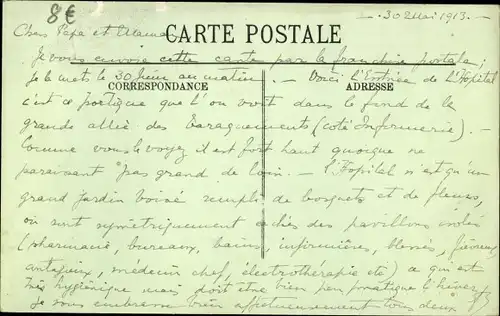 8€
30 Mai 1913.
Chers Papa et Maman
CARTE POSTALE
Je vous envoie cette carte par la franchise postale;
je la mets le 30 juin au matin. — Voici l'Entrée de l'Hôpital
CORRESPONDANCE
ADRESSE
c'est ce portique que l'on voit dans le fond de la
grande allée des Baraquements (coté Infirmerie). —
Comme vous le voyez il est fort haut quoique ne
paraissant pas grand de loin. — l'Hopital n'est qu'un
grand jardin boisé rempli de bosquets et de fleurs,
où sont symétriquement des pavillons isolés
(pharmacie, bureaux, bains, infirmières, blessés, fiévreux
contagieux, médecin chef, électrothérapie etc) ce qui est
très hygiénique mais doit être bien peu pratique l'hiver
Je vous embrasse bien affectueusement tous deux